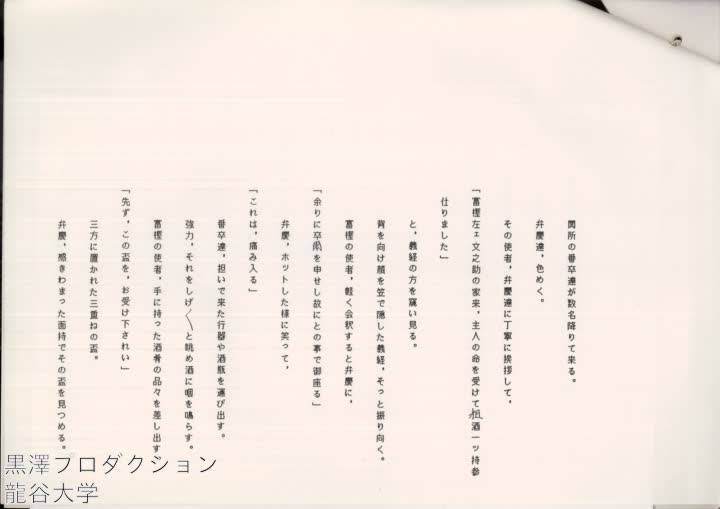 関所の番卒達が数名降りて来る。
弁慶達，色めく。
その使者，弁慶達に丁寧に挨拶して，
「富樫左ェ文之助の家来，主人の命を受けて粗酒一ッ持参
仕りました」
と，義経の方を窺い見る。
背を向け顔を笠で隠した義経，そっと振り向く。
富樫の使者，軽く会釈すると弁慶に，
「余りに卒爾を申せし故にとの事で御座る」
弁慶，ホットした様に笑って，
「これは，痛み入る」
番卒達，担いで来た行器や酒瓶を運び出す。
強力，それをしげ〳〵と眺め酒に咽を鳴らす。
富樫の使者，手に持った酒肴の品々を差し出す
「先ず，この盃を，お受け下されい」
三方に置かれた三重ねの盃。
弁慶，感きわまった面持でその盃を見つめる。
黒澤プロダクション
龍谷大学